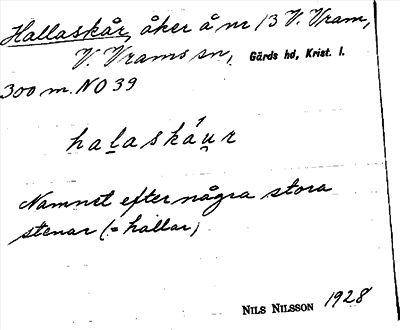 Hallaskår, åker å nr 13 V. Vram,
V. Vrams sn, Gärds hd, Krist. l.
300 m. NO 39
halaskáu̯r
Namnet efter några stora
stenar (= hallar)
NILS NILSSON 1928